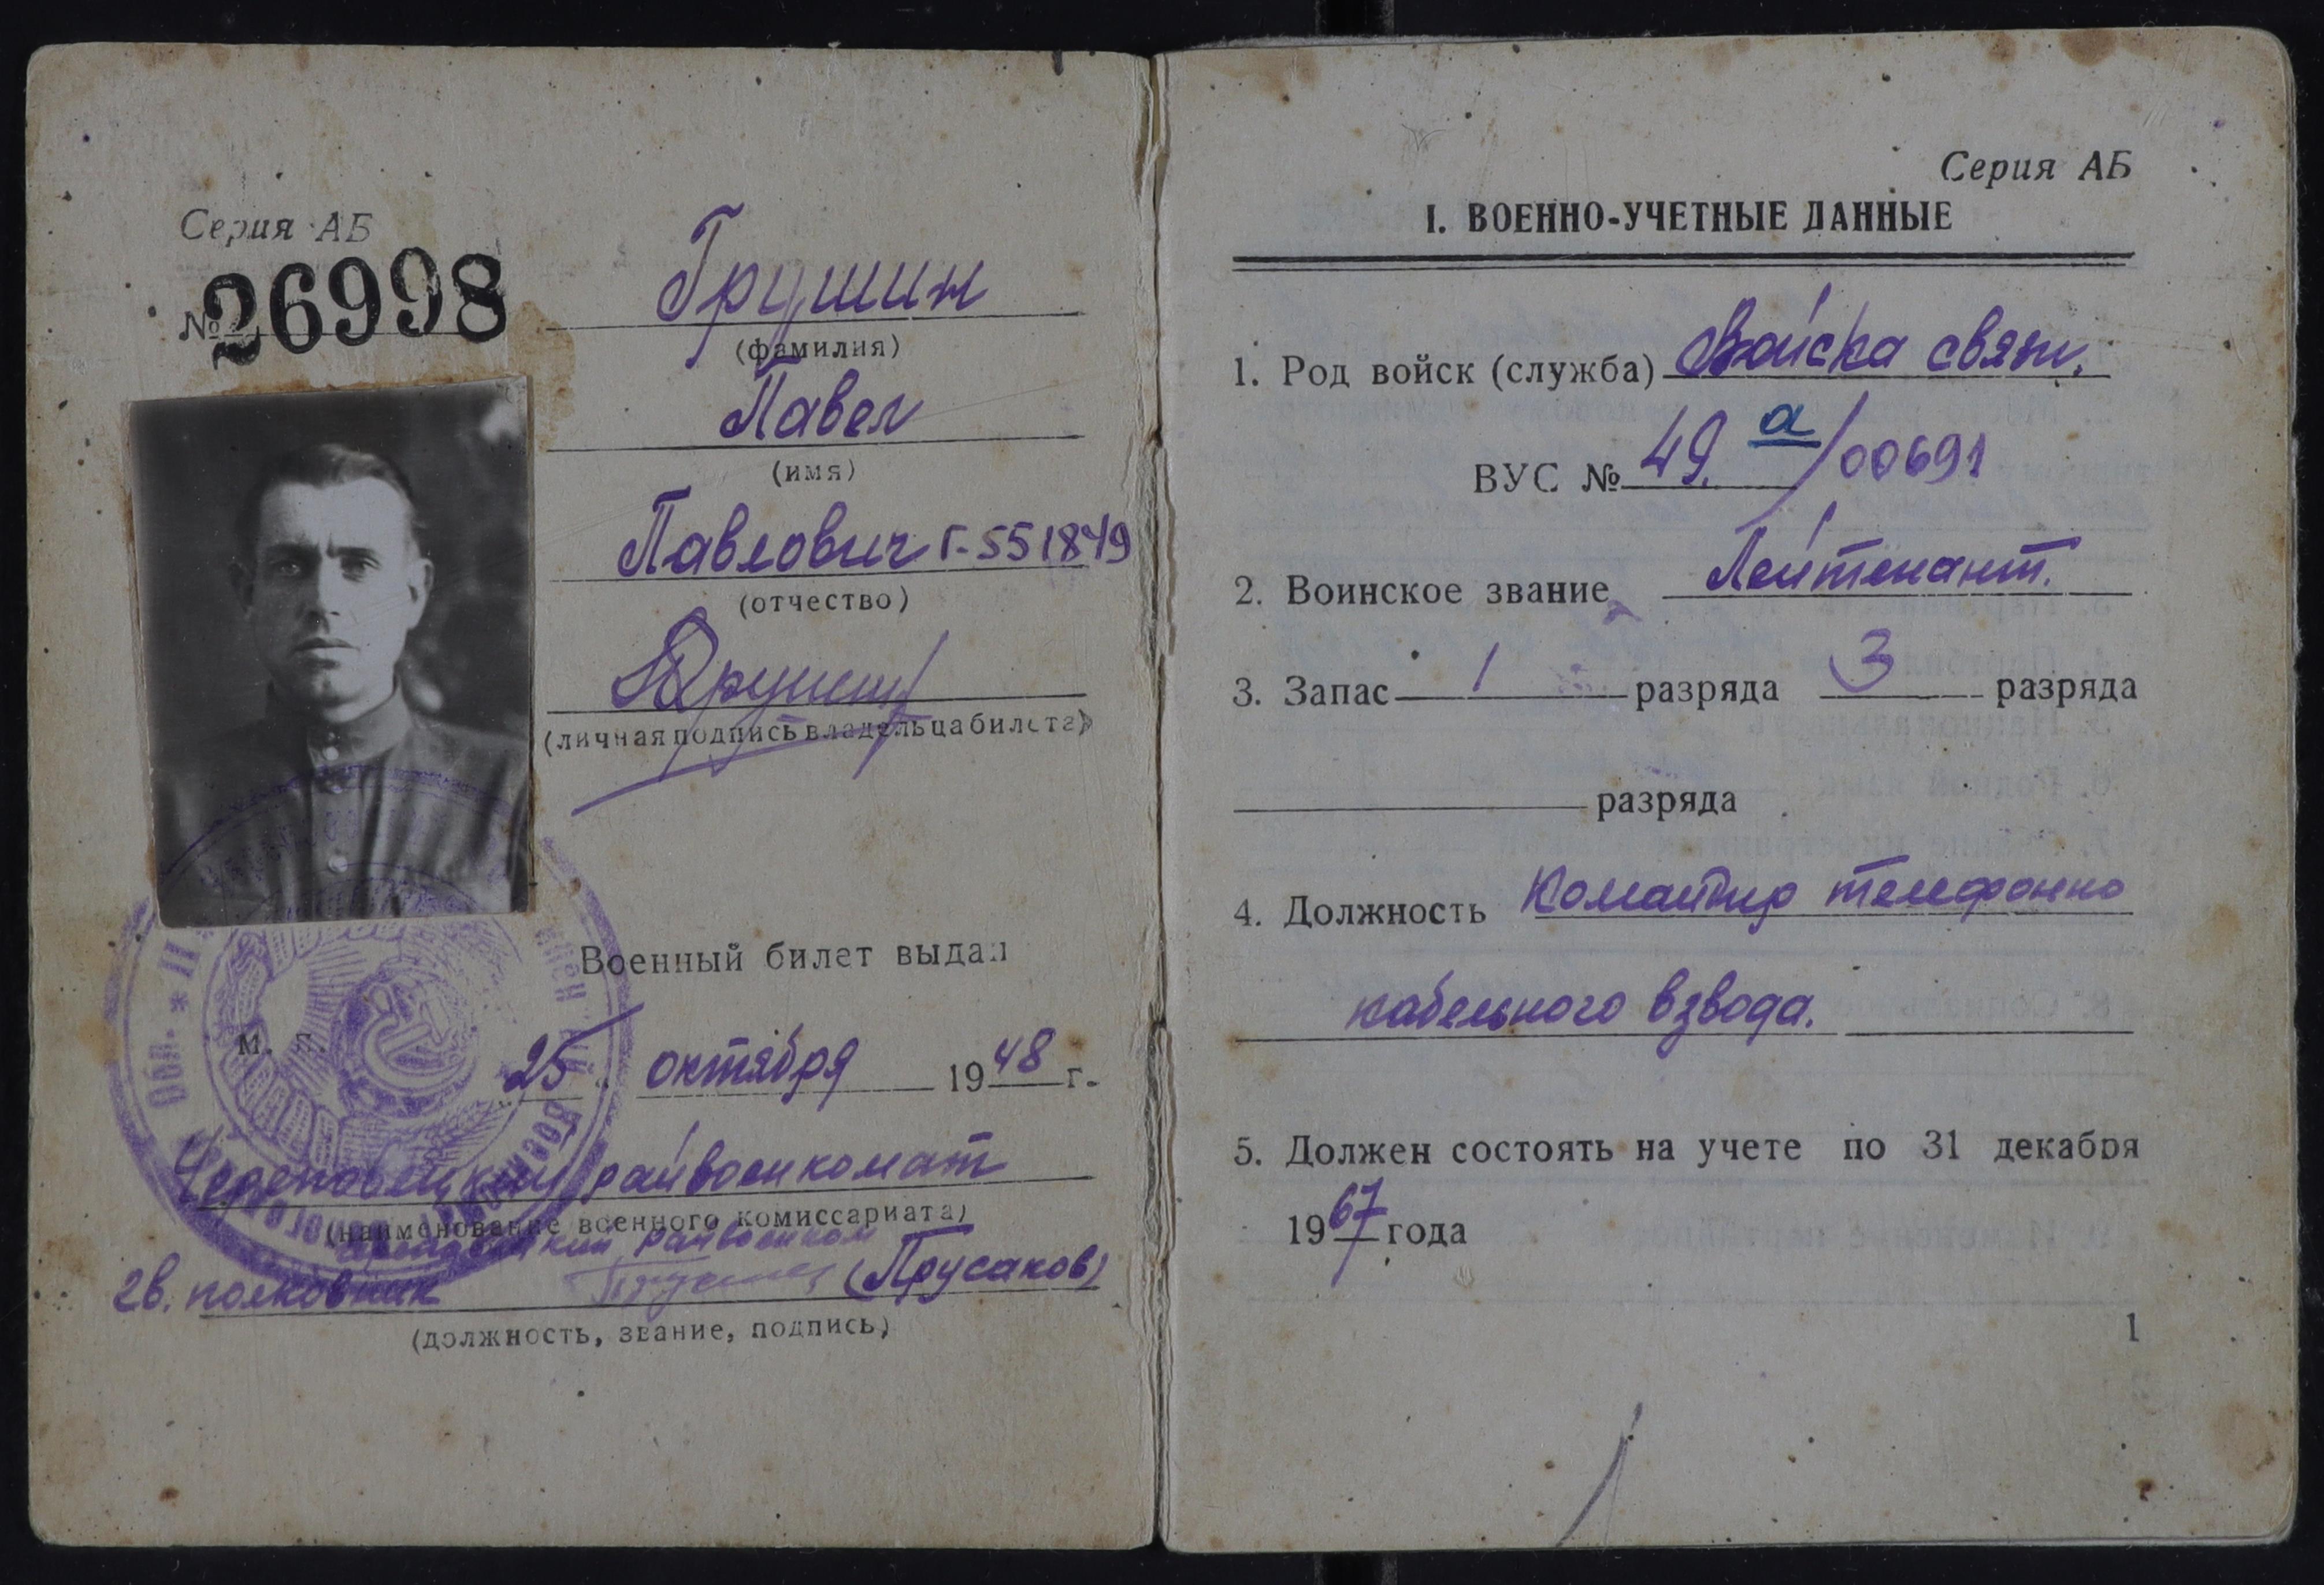 Серия АБ
№ 26998
Грушин
(фамилия)
Павел
(имя)
Павлович Г-551849
(отчество)
(личная подпись владельца билета)
Военный билет выдан
М. П.
25 октября 1948 г.
Череповецкий райвоенкомат
(наименование военного комиссариата)
Череповецкий райвоенком
гв. полковник (Прусаков)
(должность, звание, подпись)
Серия АБ
I. ВОЕННО-УЧЕТНЫЕ ДАННЫЕ
1. Род войск (служба) Войска связи.
ВУС № 49. а/00691
2. Воинское звание Лейтенант.
3. Запас 1 разряда 3 разряда
разряда
4. Должность Командир телефонно
кабельного взвода.
5. Должен состоять на учете по 31 декабря
1967 года
1